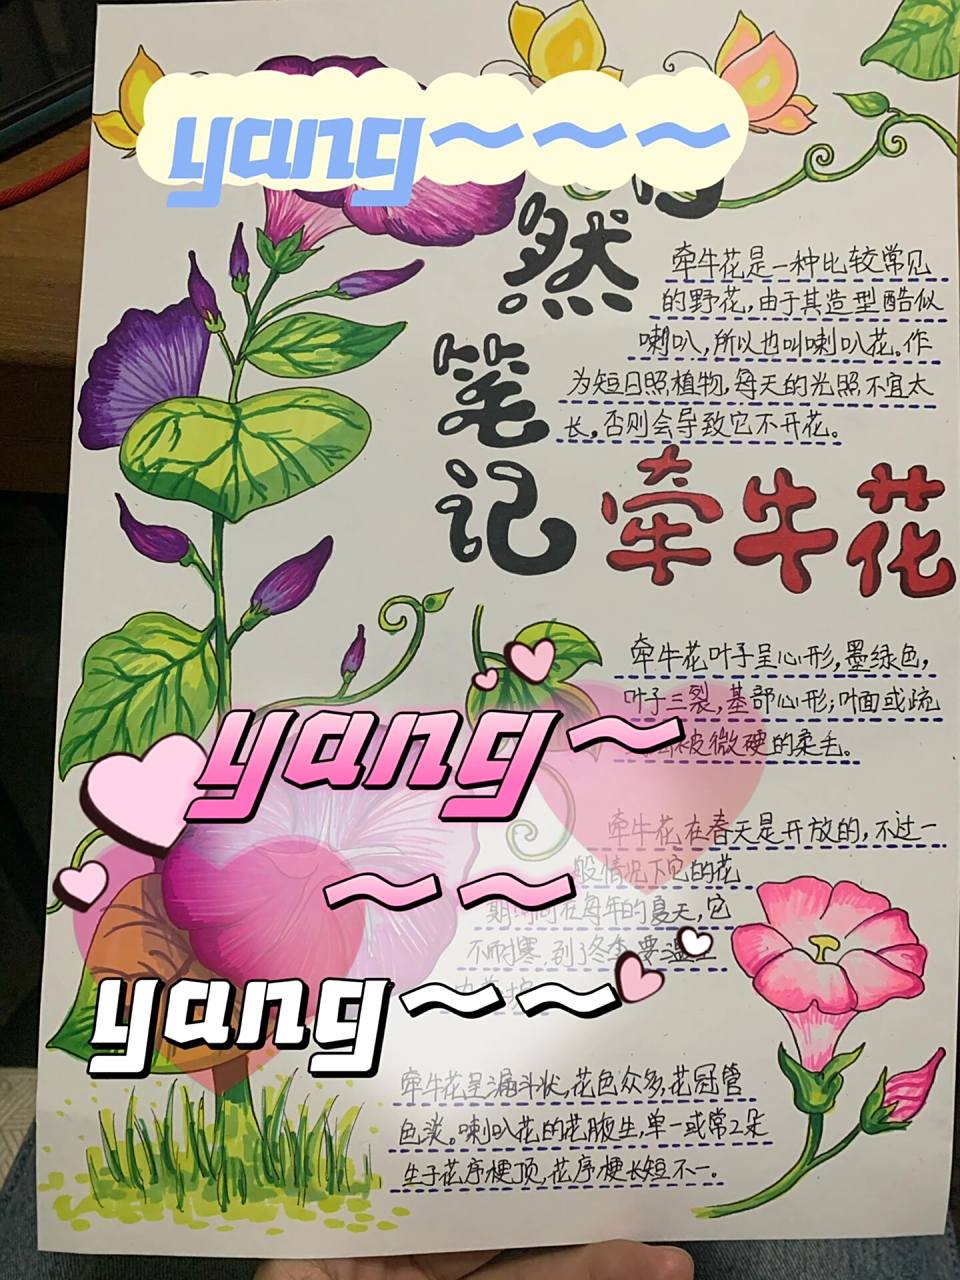 yang~~~
然
笔
记
牵牛花是一种比较常见
的野花,由于其造型酷似
喇叭,所以也叫喇叭花。作
为短日照植物,每天的光照不宜太
长,否则会导致它不开花。
牵牛花
牵牛花叶子呈心形,墨绿色,
叶子三裂,基部心形;叶面或疏
被微硬的柔毛。
yang~
~~
牵牛花在春天是开放的,不过一
般情况下它的花
期 在每年的夏天,它
不耐寒,到了冬季要
yang~~
牵牛花呈漏斗状,花色众多,花冠管
色淡。喇叭花的花腋生,单一或常2朵
生于花序梗顶,花序梗长短不一。